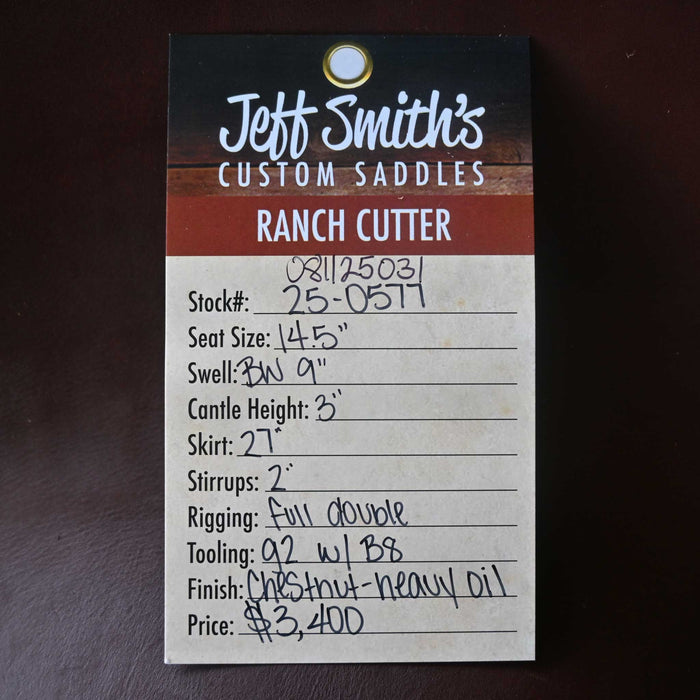 Jeff Smith's
CUSTOM SADDLES
RANCH CUTTER
081125031
Stock#: 25-0577
Seat Size: 14.5"
Swell: BW 9"
Cantle Height: 3"
Skirt: 27"
Stirrups: 2"
Rigging: full double
Tooling: 92 w/ B8
Finish: Chestnut-heavy oil
Price: $3,400